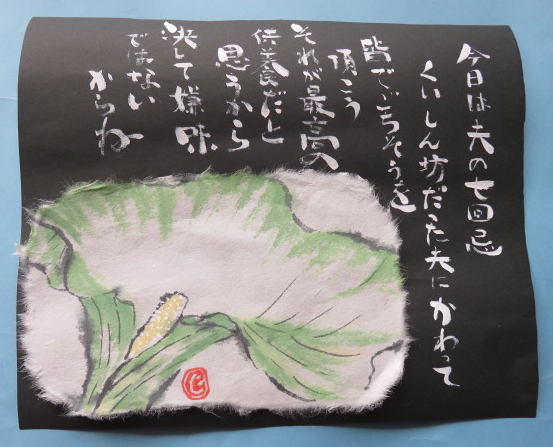 今日は夫の七回忌
くいしん坊だった夫にかわって
皆でごちそうを
頂こう
それが最高の
供養だと
思うから
決して嫌味
ではない
からね